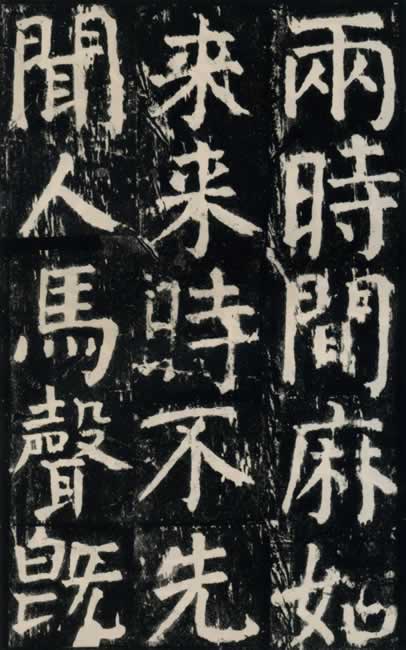 兩時間麻如
来来時不先
聞人馬聲既